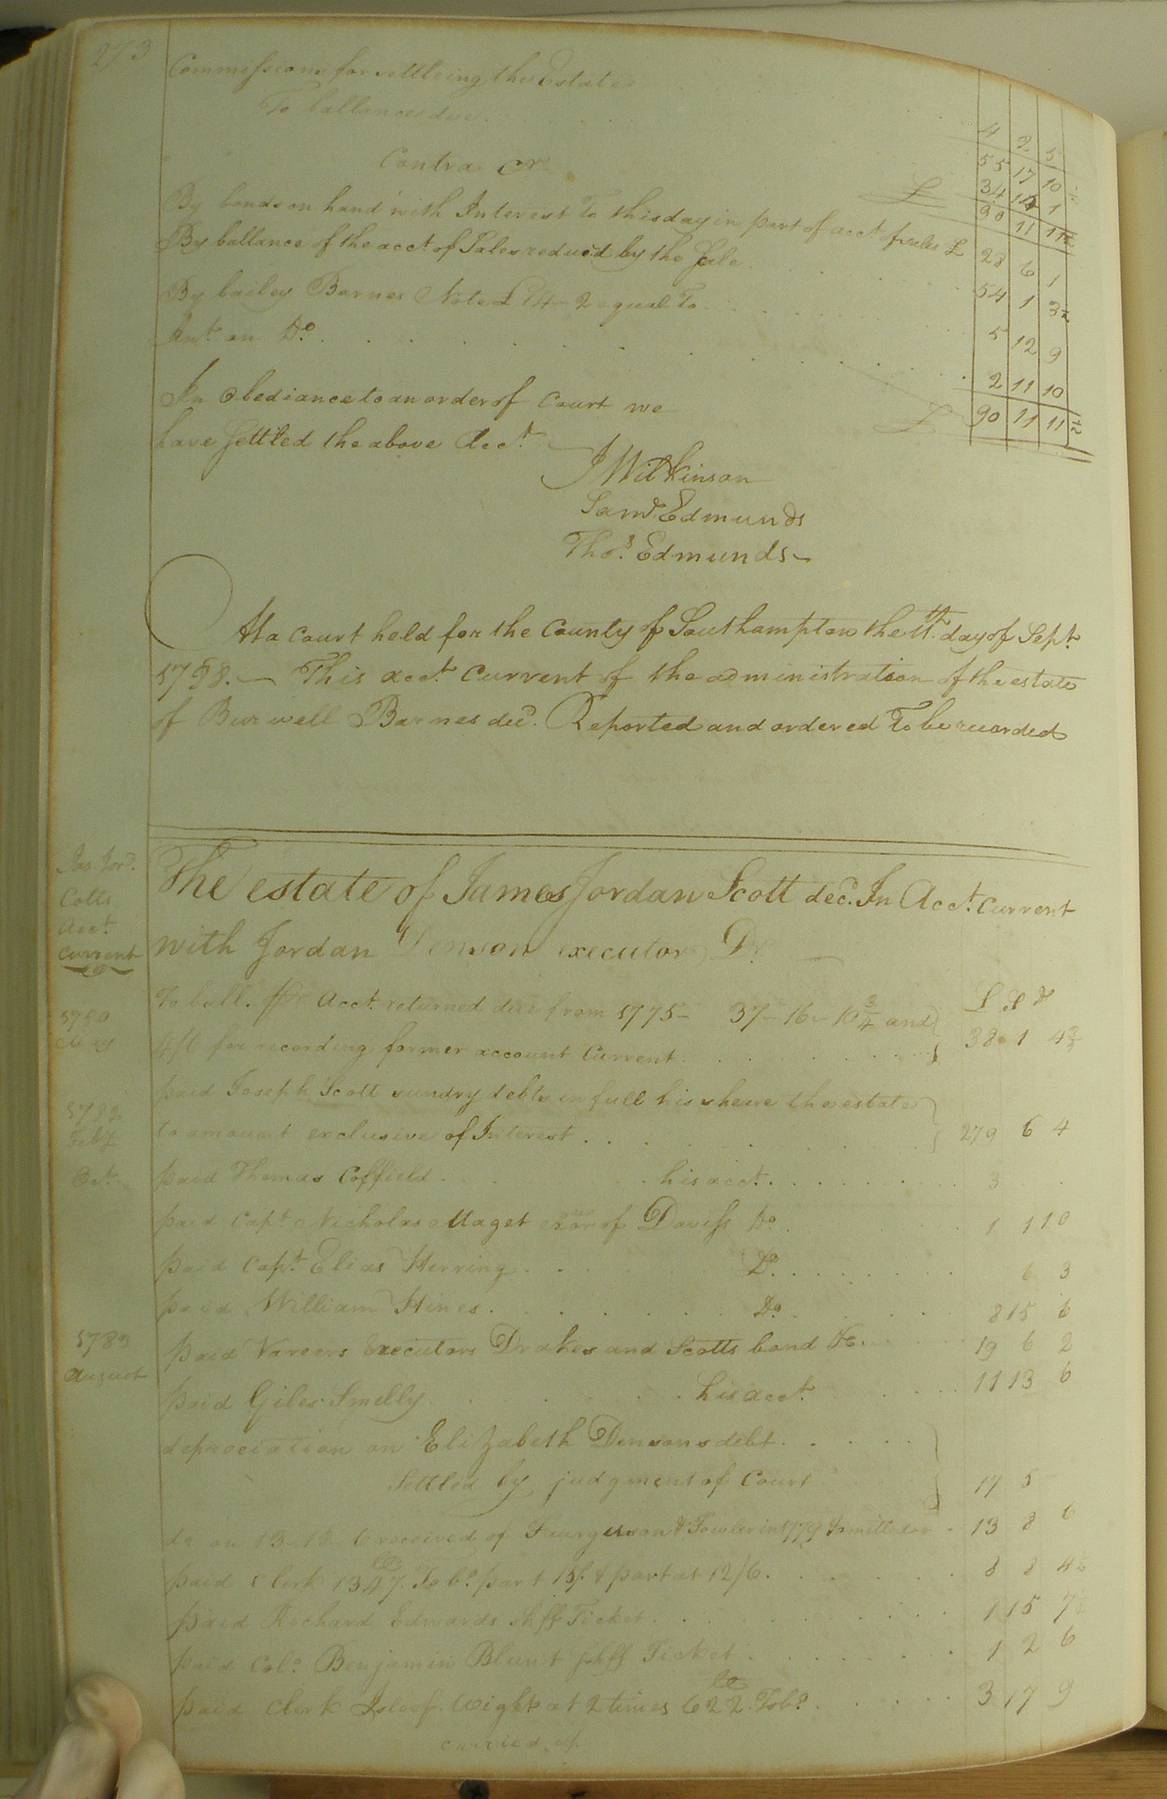 273
Commissions for settleing the Estate . . . 4 2 5
To ballance due . . . 55 17 10
£ 90 11 11½
Contra Cr
By bonds on hand with Interest to this day in part of acct of sales £ 28 6 1
By ballance of the acct of Sales reducd by the Sale . . . 54 1 3½
By bailey Barnes Note equal to . . . 5 12 9
Int on Do . . . 2 11 10
£ 90 11 11½
In obediance to an order of Court we
have settled the above Acct
J Wilkinson
Saml Edmunds
Thos Edmunds
At a Court held for the County of Southampton the day of Sept
1798. This acct Current of the administration of the estate
of Burwell Barnes decd. Reported and ordered to be recorded
Jas Jord
Cotts
Acct
Current
The estate of James Jordan Scott decd. In Acct. Current
with Jordan Denson executor Dr
£ S d
To ball. pr Acct returned due from 1775 37 - 16 - 10¾ and
4/6 for recording former account Current . . . 38 1 4¾
May
paid Joseph Scott sundry debts in full his share the estate
1782
Feby
to amount exclusive of Interest . . . 279 6 4
paid Thomas Coffield . . . his acct . . . 3
paid Capt Nicholas Maget exor of Daviss Do . . . 1 1 10
paid Capt Elias Herring . . . Do . . . 6 3
paid William Hines . . . Do . . . 8 15 6
1783
August
paid Executors Drakes and Scotts bond &c . . . 19 6 2
paid Giles Smelly . . . his acct . . . 11 13 6
depreciation on Elizabeth Densons debt . . .
Settled by judgment of Court 17 5
do on 13 - 13 - 6 received of & Fowler in 1779 . 13 8 6
paid Clerk 1347 lb Tobo. part 15/. & part at 12/6 . . . 8 8 4½
paid Richard Edwards Shff Ticket . . . 1 15 7½
paid Colo. Benjamin Blunt Shff Ticket . . . 1 2 6
paid Clerk Isle of Wight at 2 times 622 lb Tobo. . . . 3 17 9
carried up